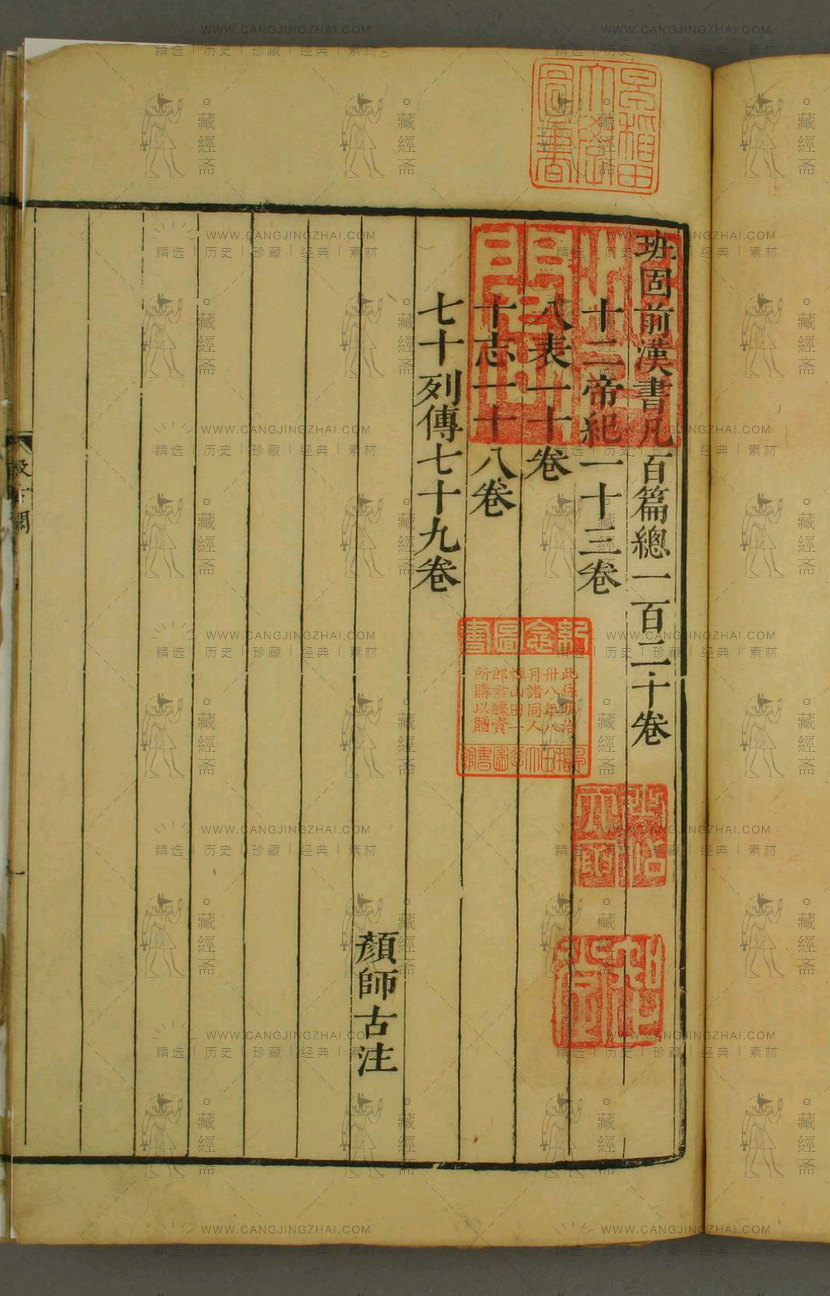 班固前漢書凡百篇總一百二十卷
十二帝紀一十三卷
八表一十卷
十志一十八卷
七十列傳七十九卷
顏師古注
紀念圖書
此係明治
卅八年八
月諸同人
所購以贈
WWW.CANGJINGZHAI.COM
精选 | 历史 | 珍藏 | 经典 | 素材
藏經斋